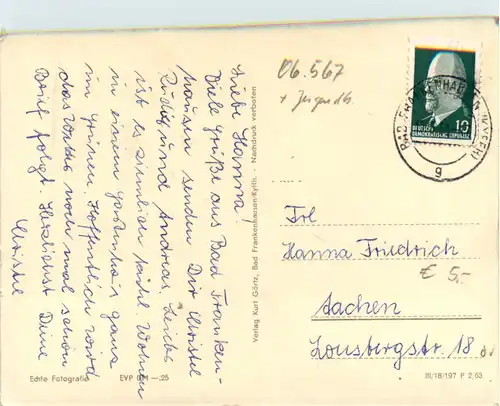 Liebe Hanna!
Viele Grüße aus Bad Franken-
hausen senden Dir Christel
Rüdig und Andreas. Leider
ist es ziemlich kühl. Wohnen
in einem Gasthaus ganz
im Grünen. Hoffentlich wird
das Wetter noch mal schön
Brief folgt. Herzlichst Deine
Christel
Echte Fotografie EVP DM -.25
Verlag Kurt Görtz, Bad Frankenhausen-Kyffh. · Nachdruck verboten
06.567
+ Jugendh.
10
DEUTSCHE
DEMOKRATISCHE REPUBLIK
BAD FRANKENHAUSEN (KYFFH)
g
Frl
Hanna Friedrich
€ 5,-
Aachen
Lousbergstr. 18
III/18/197 P 2/63